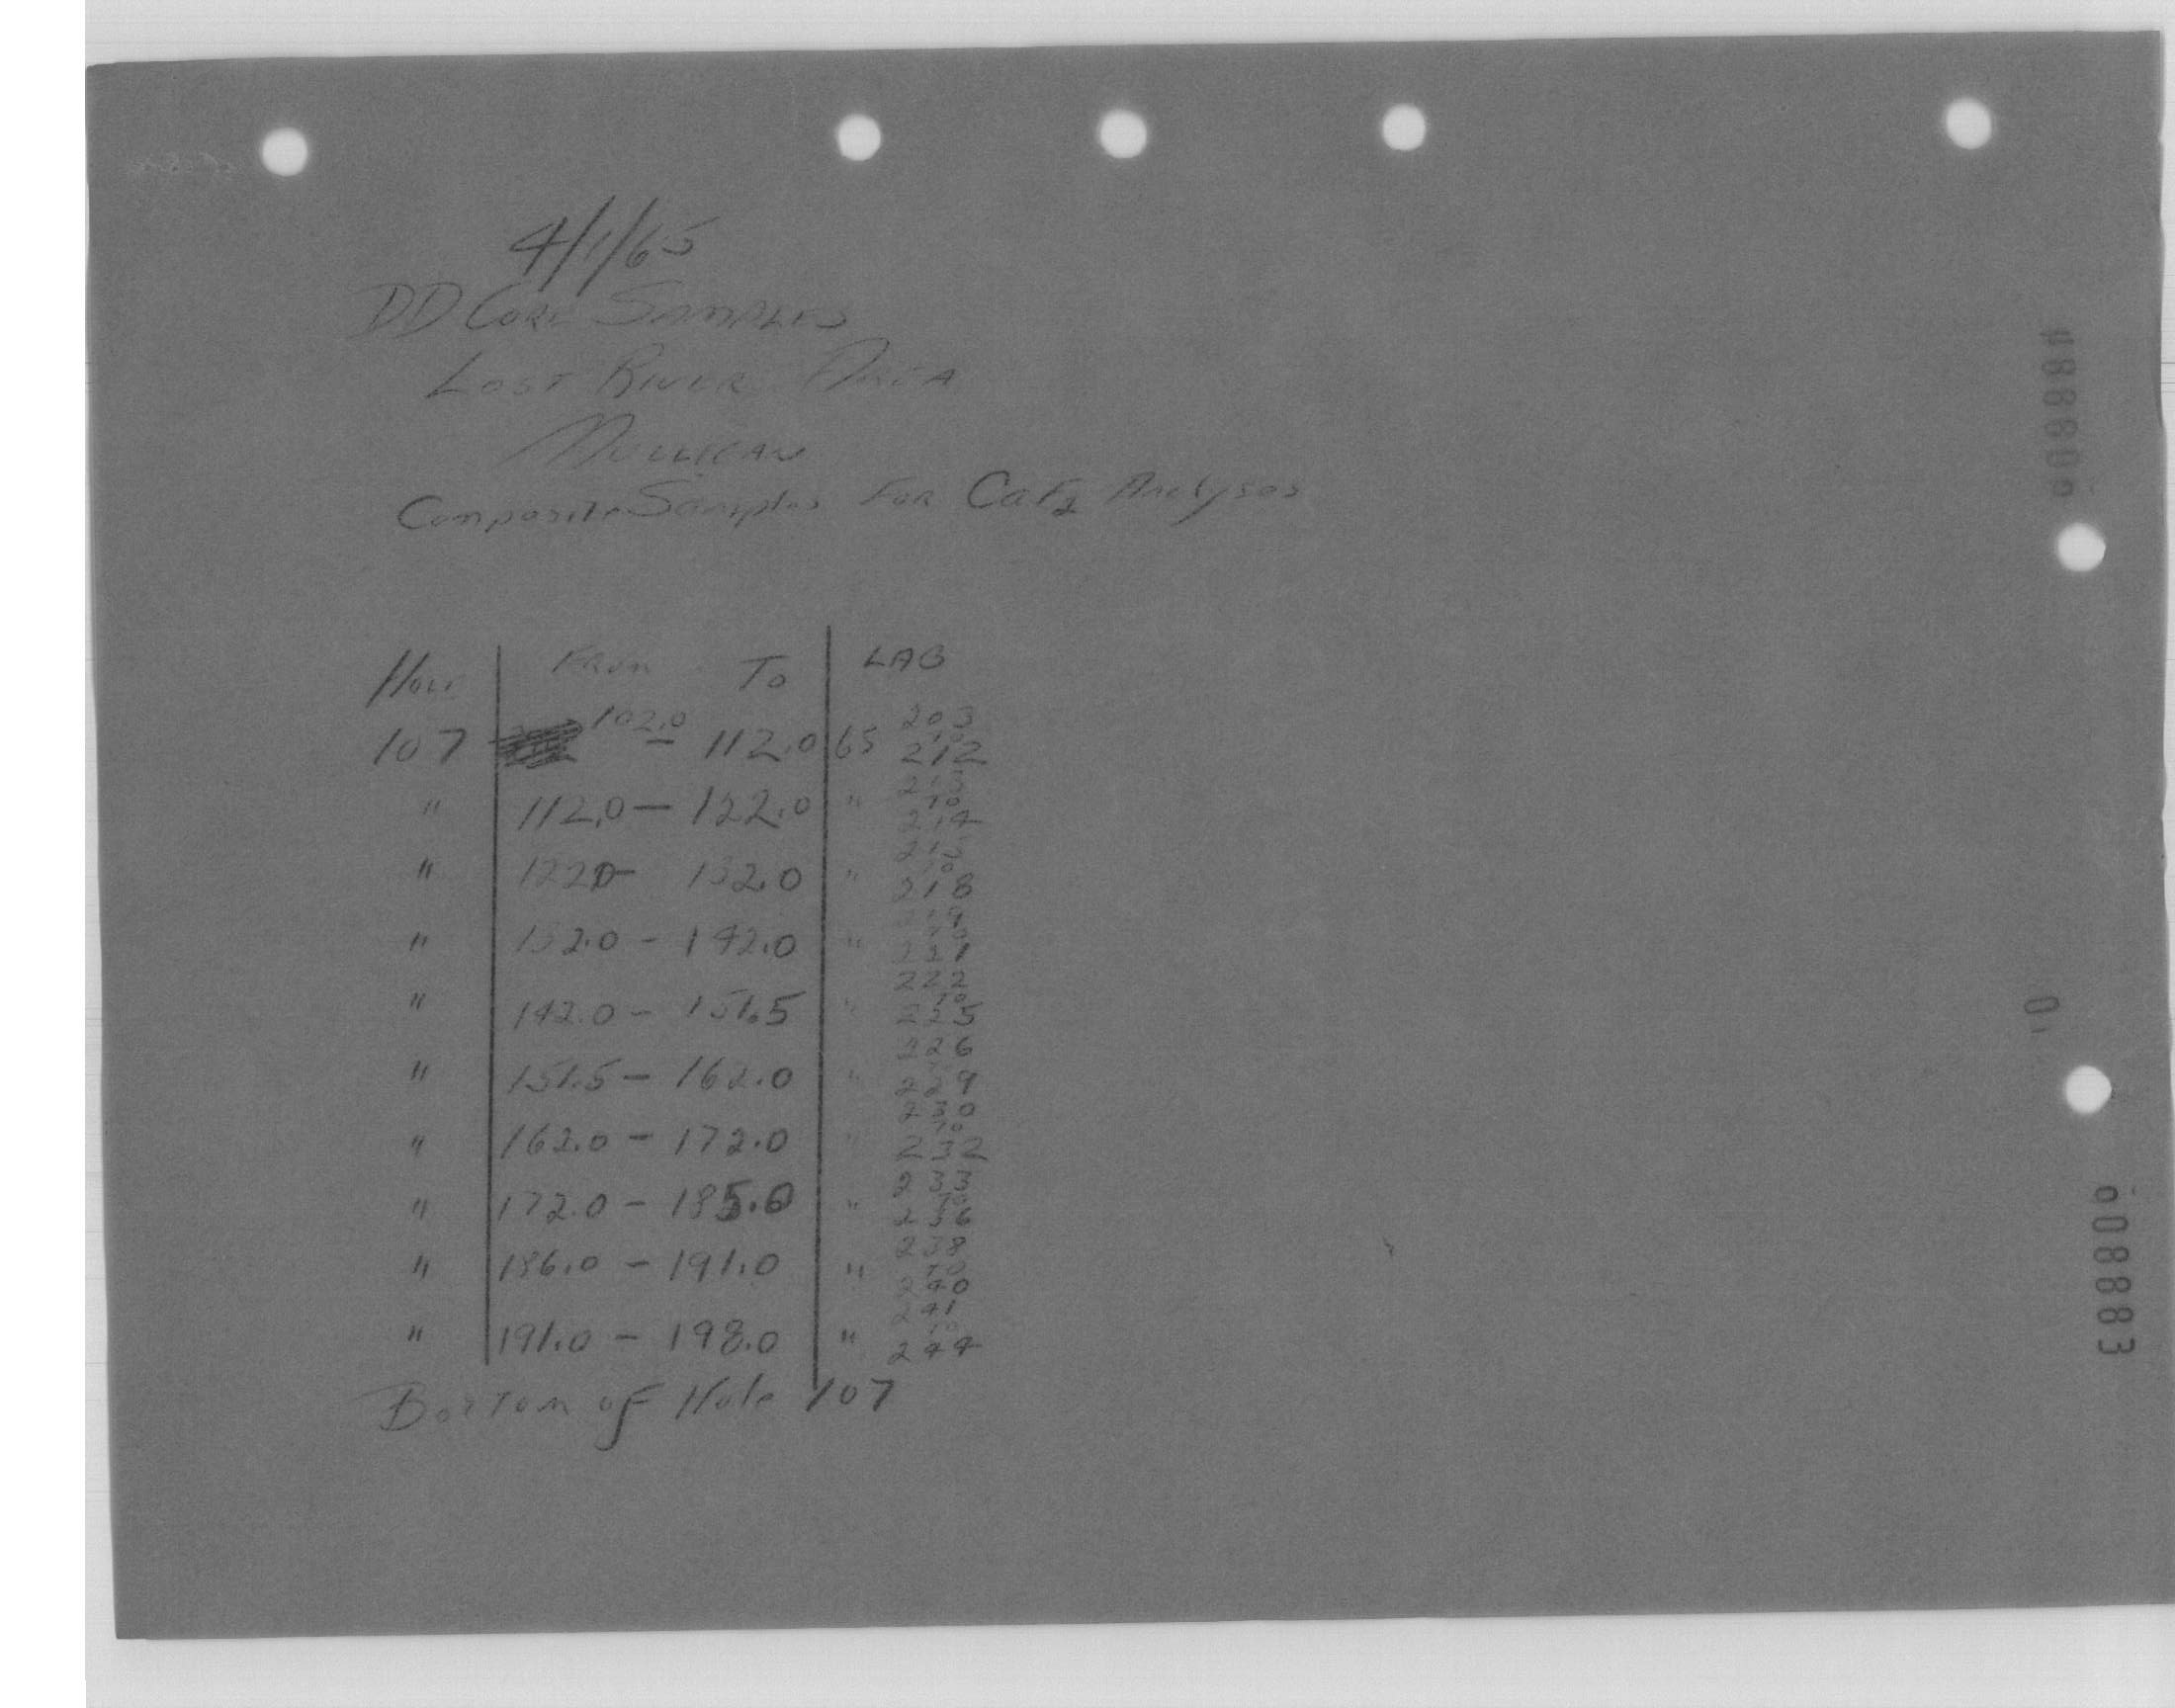 4/1/65
DD Core Samples
Lost River Area
Mulligan
Composite Samples For CaF2 Analyses
Hole From To LAB
107 102.0 - 112.0 65 203 to 212
" 112.0 - 122.0 " 213 to 214
" 122.0 - 132.0 " 215 to 218
" 132.0 - 142.0 " 219 to 221
" 142.0 - 151.5 " 222 to 225
" 151.5 - 162.0 " 226 229
" 162.0 - 172.0 " 230 to 232
" 172.0 - 185.0 " 233 to 236
" 186.0 - 191.0 " 238 to 240
" 191.0 - 198.0 " 241 to 244
Bottom of Hole 107
008883